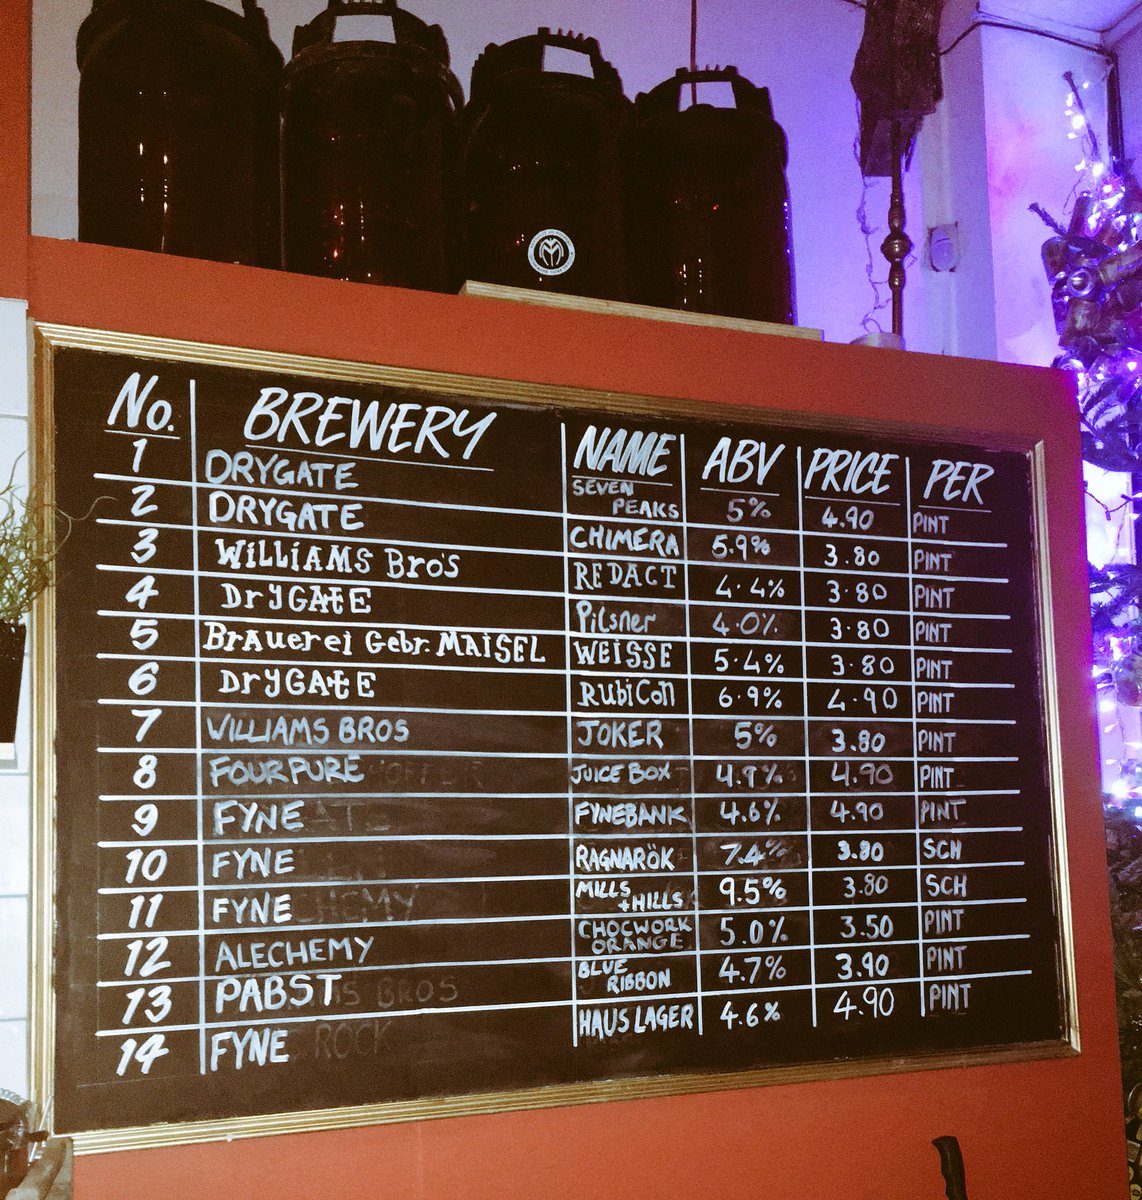 No. BREWERY NAME ABV PRICE PER
1 DRYGATE SEVEN PEAKS 5% 4.90 PINT
2 DRYGATE CHIMERA 5.9% 3.80 PINT
3 WiLLiAMS Bro's REDACT 4.4% 3.80 PINT
4 DrYGAtE PiLsner 4.0% 3.80 PINT
5 BrAuerei Gebr. MAiSEL WEISSE 5.4% 3.80 PINT
6 DrYGAtE RubiCon 6.9% 4.90 PINT
7 WILLIAMS BROS JOKER 5% 3.80 PINT
8 FOURPURE JUICE BOX 4.9% 4.90 PINT
9 FYNE FYNEBANK 4.6% 4.90 PINT
10 FYNE RAGNARÖK 7.4% 3.80 SCH
11 FYNE MILLS + HILLS 9.5% 3.80 SCH
12 ALECHEMY CHOCWORK ORANGE 5.0% 3.50 PINT
13 PABST BLUE RIBBON 4.7% 3.90 PINT
14 FYNE HAUS LAGER 4.6% 4.90 PINT